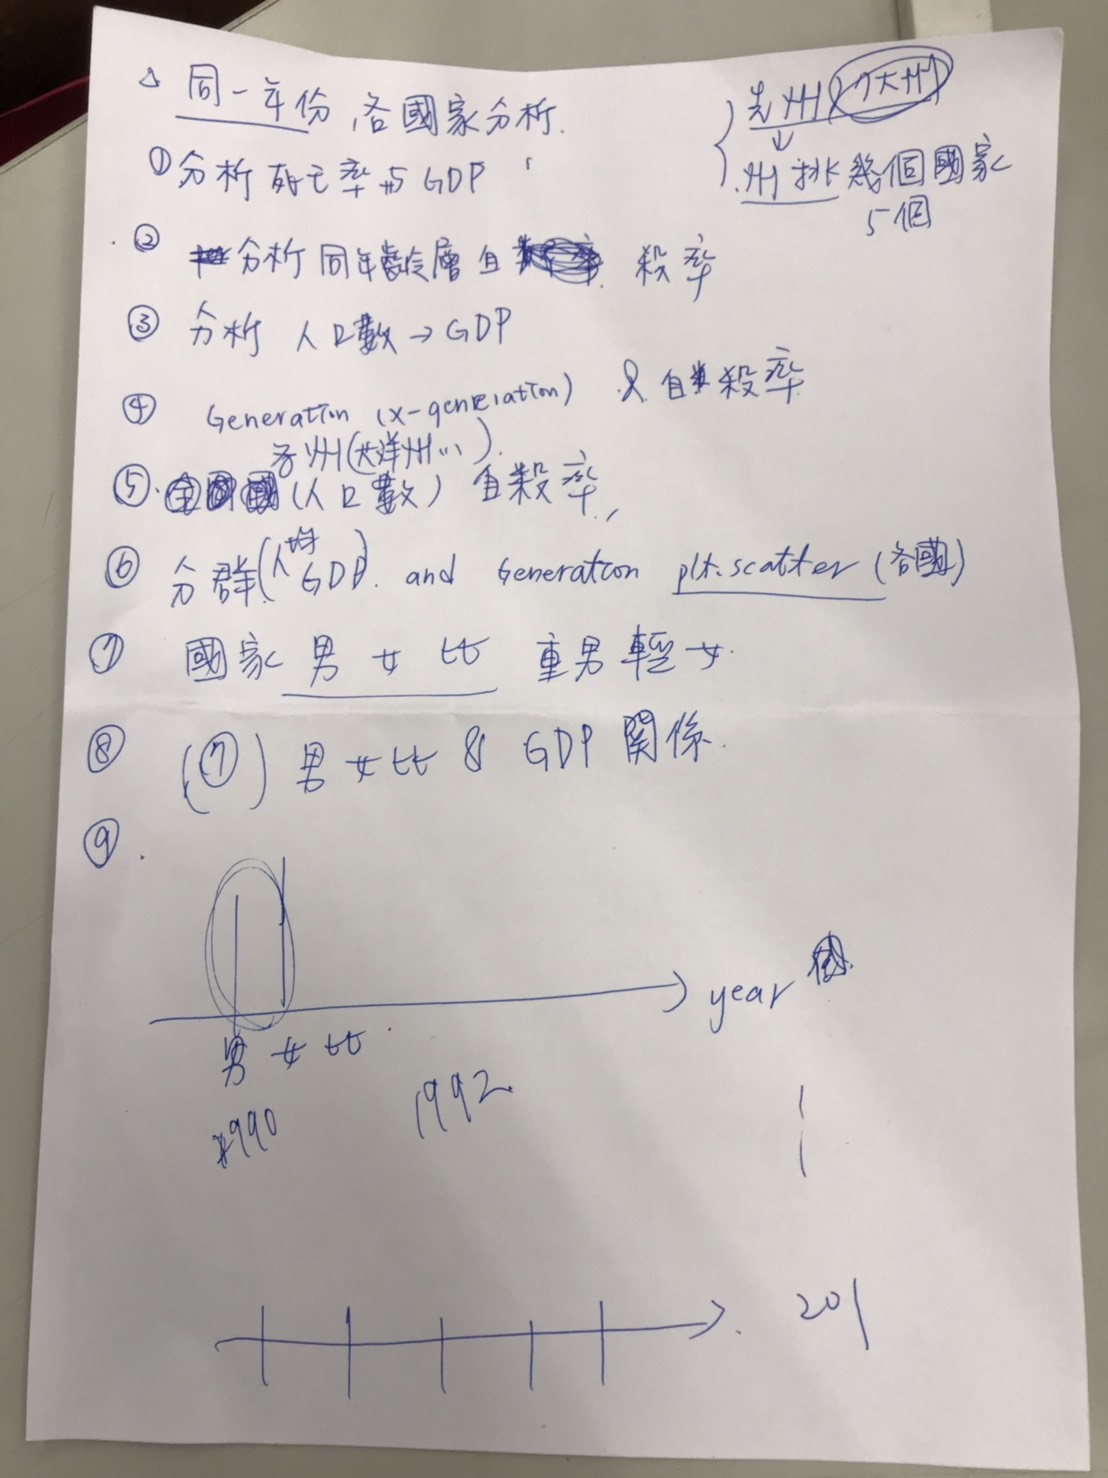 △ 同一年份,各國家分析.
先州(7大州)
↓
州挑幾個國家
5個
① 分析死亡率与GDP
② 分析同年齡層自殺率
③ 分析 人口數→GDP
④ Generation (x-generation) & 自殺率
各州(大洋州...)
⑤ (人口數) 自殺率,
⑥ 分群(人均GDP). and Generation plt.scatter (各國)
⑦ 國家 男女比 重男輕女.
⑧ (⑦) 男女比 & GDP 関係.
⑨
year
男女比
1990 1992
201